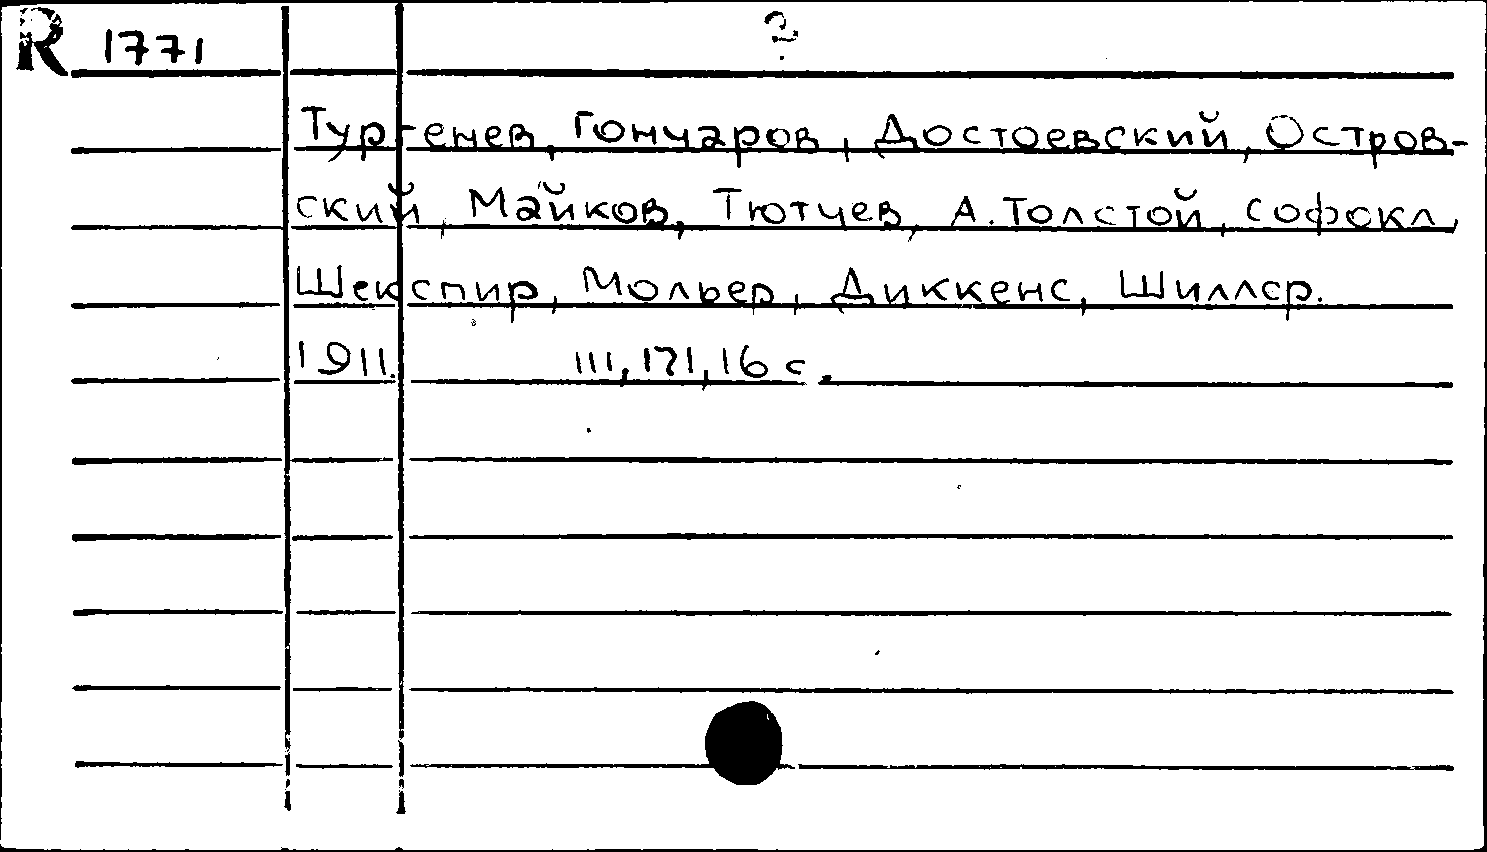 R 1771
2
Тургенев, Гончаров, Достоевский, Остров-
ский, Майков, Тютчев, А.Толстой, Софокл,
Шекспир, Мольер, Диккенс, Шиллер.
1911. III, 171, 16 с.